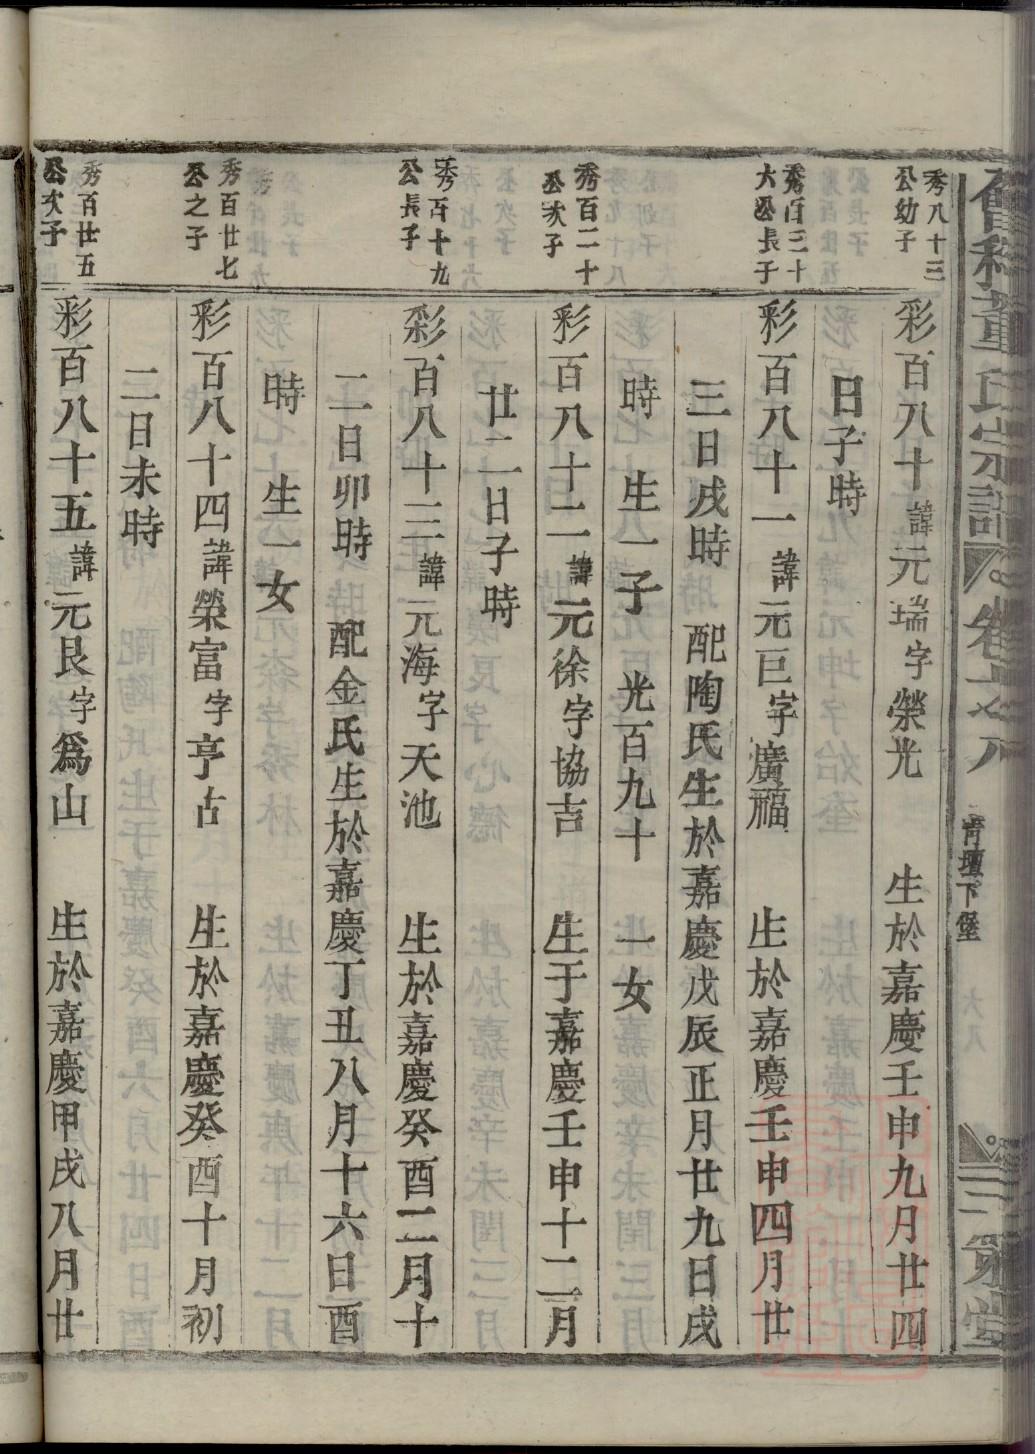 董氏宗譜 卷之八 青壇下堡 三策堂
秀八十三公幼子
彩百八十諱元瑞字榮光 生於嘉慶壬申九月廿四
日子時
秀百三十六公長子
彩百八十一諱元巨字廣福 生於嘉慶壬申四月廿
三日戌時 配陶氏生於嘉慶戊辰正月廿九日戌
時 生一子 光百九十 一女
秀百二十公次子
彩百八十二諱元徐字協吉 生于嘉慶壬申十二月
廿二日子時
秀百十九公長子
彩百八十三諱元海字天池 生於嘉慶癸酉二月十
二日卯時 配金氏生於嘉慶丁丑八月十六日酉
時 生一女
秀百廿七公之子
彩百八十四諱榮富字亨占 生於嘉慶癸酉十月初
二日未時
秀百廿五公次子
彩百八十五諱元艮字爲山 生於嘉慶甲戌八月廿